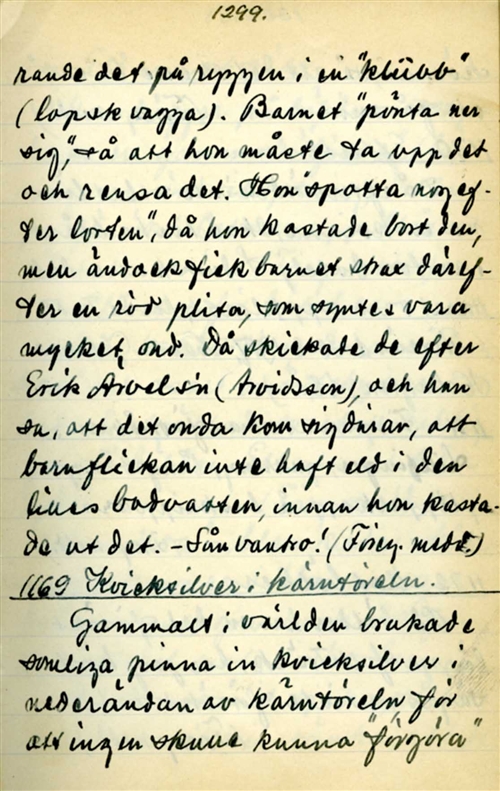 1299.
rande det på ryggen i en "klübb"
(lapsk vagga). Barnet "pönta ner
sig", så att hon måste ta upp det
och rensa det. Hon "spotta nog ef-
ter lorten", då hon kastade bort den,
men ändock fick barnet strax däref-
ter en röd plita, som syntes vara
mycket ond. Då skickade de efter
Erik Arvelsn (Arvidsson), och han
sa, att det onda kom sig därav, att
barnflickan inte haft eld i den
lilles badvatten, innan hon kasta-
de ut det. – Sån vantro! (Föreg. medd.)
1169 Kvicksilver i kärntöreln.
Gammalt i världen brukade
somliga pinna in kvicksilver i
nederändan av kärntöreln för
att ingen skulle kunna "förgöra"